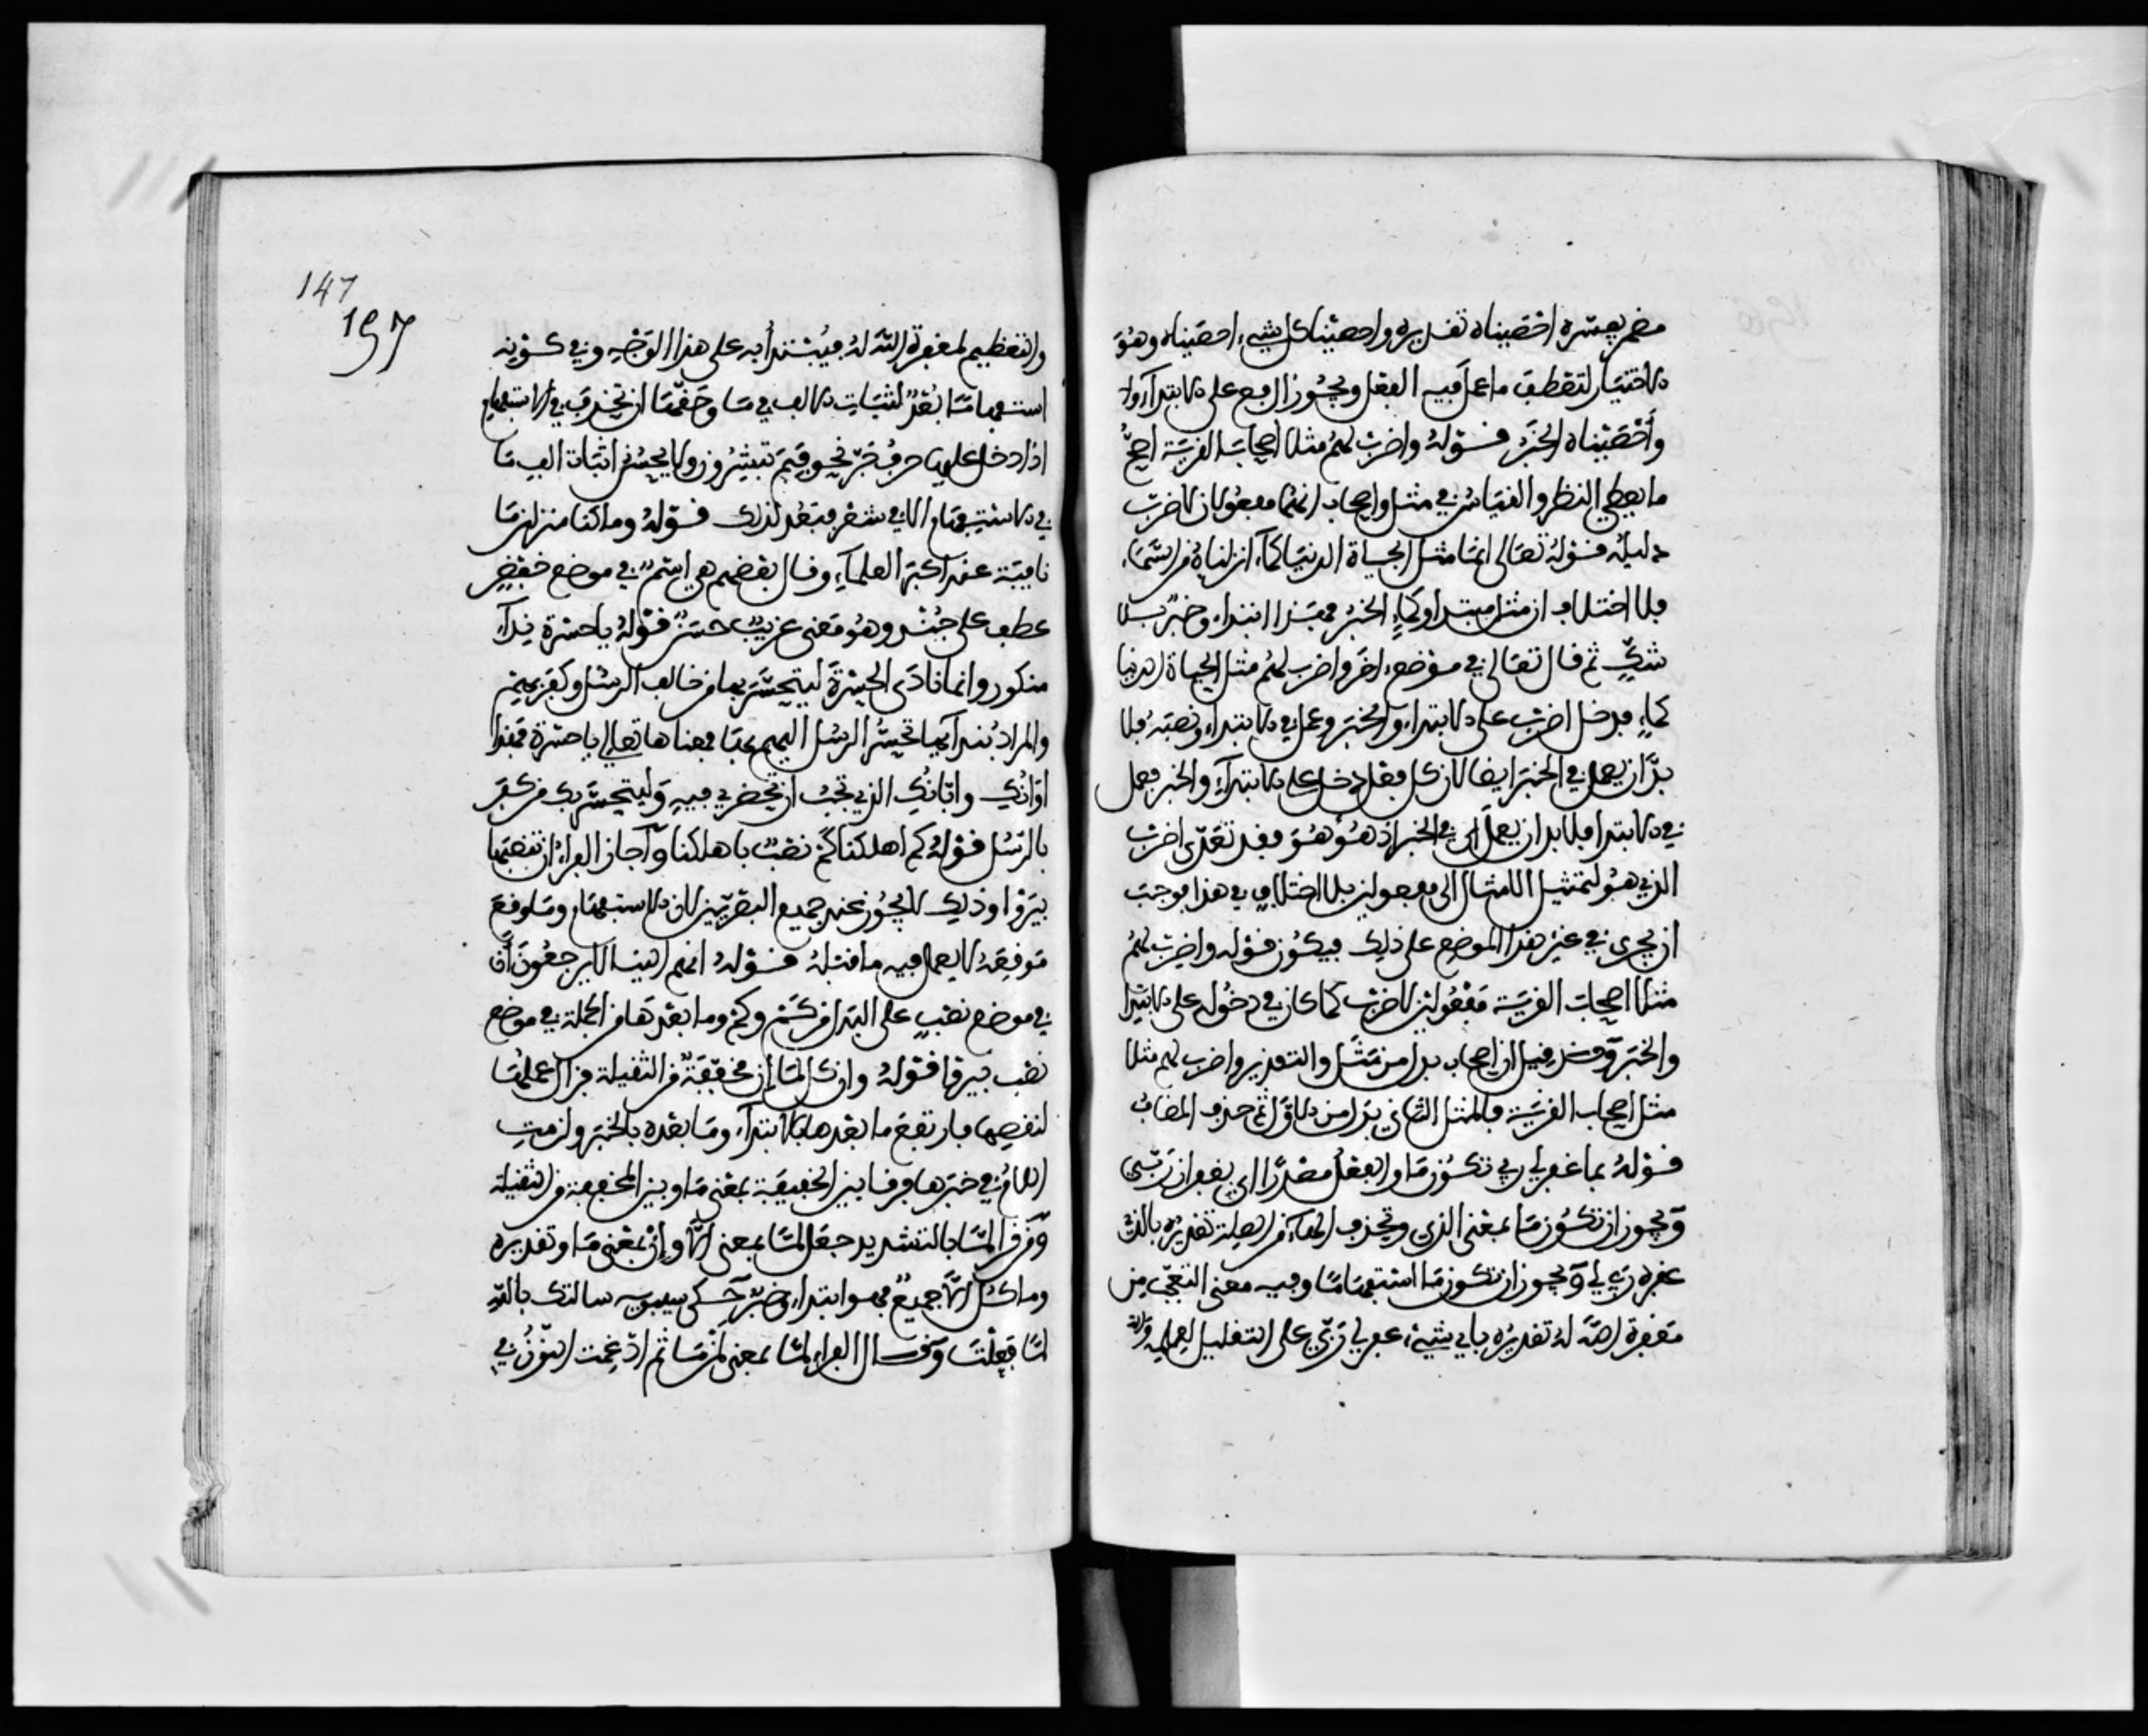 مضمر يفسره احصيناه تقديره واحصينا كل شيء احصيناه وهو
الاختيار لتعطف ما عمل فيه الفعل ويجوز الرفع على الابتداء
وأحصيناه الخبر قوله واضرب لهم مثلا اصحاب القرية اصح
ما يعطي النظر والقياس في مثل واصحاب انهما مفعولان لاضرب
دليله قوله تعالى انما مثل الحياة الدنيا كماء انزلناه من السماء
فلا اختلاف ان مثل مبتدا وكماء الخبر فهذا ابتداء وخبر بلا
شك ثم قال تعالى في موضع اخر واضرب لهم مثل الحياة الدنيا
كماء فدخل اضرب على الابتداء والخبر وعمل في الابتداء ونصبه فلا
بد ان يعمل في الخبر ايضا لان كل فعل دخل على الابتداء والخبر فعمل
في الابتدا فلا بد ان يعمل في الخبر اذ هو هو فقد تعدى اضرب
الذي هو لتمثيل الامثال الى مفعولين بلا اختلاف في هذا فوجب
ان يجري في غير هذا الموضع على ذلك فيكون قوله واضرب لهم
مثلا اصحاب القرية مفعولين لاضرب كما كان في دخوله على الابتدا
والخبر وقد قيل ان اصحاب بدل من مثل والتقدير واضرب لهم مثلا
مثل اصحاب القرية فالمثل الثاني بدل من الاول ثم حذف المضاف
قوله بما غفر لي ربي تكون ما والفعل مصدرا اي بغفران ربي
ويجوز ان تكون ما بمعنى الذي وتحذف الهاء من الصلة تقديره بالذي
غفره ربي لي ويجوز ان تكون ما استفهاما وفيه معنى التعجب من
مغفرة الله له تقديره باي شيء غفر لي ربي على التقليل لعمله
147
١٤٧
والتعظيم لمغفرة الله له فيبتدأ به على هذا الوجه وفي كونه
استفهاما بعد لثبات الالف في ما وحقها ان تحذف في الاستفهام
اذا دخل عليها حرف جر نحو فبم تبشرون ولا يحسن اثبات الف ما
في الاستفهام الا في شعر فبعد لذلك قوله وما كنا منزلين ما
نافية عند اكثر العلماء وقال بعضهم هي اسم في موضع خفض
عطف على جند وهو معنى غريب حسن قوله يا حسرة نداء
منكور وانما نادى الحسرة ليتحسر بها من خالف الرسل وكفر بهم
والمراد بندائها تحسر الرسل اليهم بها فمعناها تعالي يا حسرة فهذا
اوانك وابانك الذي يجب ان تحضري فيه وليتحسر بك من كفر
بالرسل قوله كم اهلكنا كم نصب باهلكنا واجاز الفراء ان تنصبها
بيروا وذلك لا يجوز عند جميع البصريين لان الاستفهام وما وقع
موقعه لا يعمل فيه ما قبله قوله انهم اليهم لا يرجعون أن
في موضع نصب على البدل من كم وكم وما بعدها من الجملة في موضع
نصب بيروا قوله وان كل لما إن مخففة من الثقيلة فزال عملها
لنقصها فارتفع ما بعدها بالابتداء وما بعده بالخبر ولزمت
اللام في خبرها فرقا بين الخفيفة بمعنى ما وبين المخففة من الثقيلة
ومن قرا لما بالتشديد جعل لما بمعنى الا وإن بمعنى ما وتقديره
وما كل الا جميع فهو ابتداء وخبر حكى سيبويه سالتك بالله
لما فعلت وقال الفراء لما بمعنى لمن ما ثم ادغمت النون في